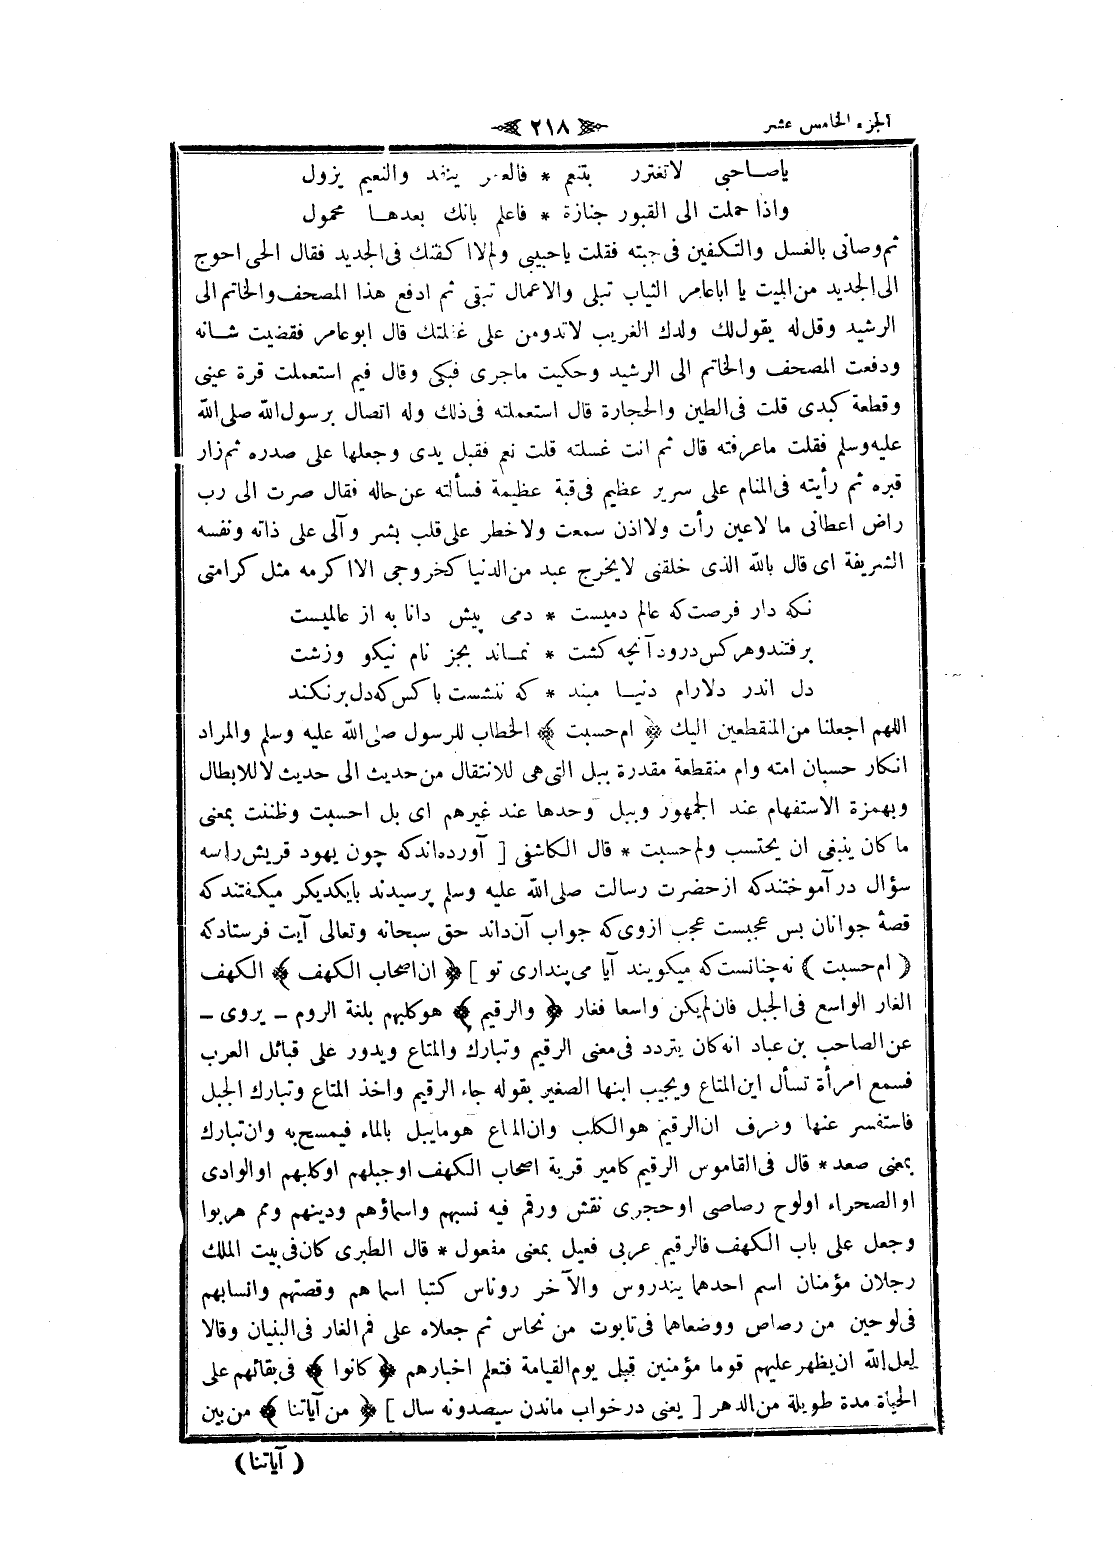 الجزء الخامس عشر
٢١٨
ياصاحبى لاتغترر بتنعم * فالعمر ينفد والنعيم يزول
واذا حملت الى القبور جنازة * فاعلم بانك بعدها محمول
ثم وصانى بالغسل والتكفين فى جبته فقلت ياحبيبى ولم لا اكفنك فى الجديد فقال الحى احوج
الى الجديد من الميت يا اباعامر الثياب تبلى والاعمال تبقى ثم ادفع هذا المصحف والخاتم الى
الرشيد وقل له يقول لك ولدك الغريب لاتدومن على غفلتك قال ابوعامر فقضيت شانه
ودفعت المصحف والخاتم الى الرشيد وحكيت ماجرى فبكى وقال فيم استعملت قرة عينى
وقطعة كبدى قلت فى الطين والحجارة قال استعملته فى ذلك وله اتصال برسول الله صلى الله
عليه وسلم فقلت ماعرفته قال ثم انت غسلته قلت نعم فقبل يدى وجعلها على صدره ثم زار
قبره ثم رأيته فى المنام على سرير عظيم فى قبة عظيمة فسألته عن حاله فقال صرت الى رب
راض اعطانى ما لاعين رأت ولااذن سمعت ولاخطر على قلب بشر وآلى على ذاته ونفسه
الشريفة اى قال بالله الذى خلقنى لايخرج عبد من الدنيا كخروجى الا اكرمه مثل كرامتى
نكه دار فرصت كه عالم دميست * دمى پيش دانا به از عالميست
برفتند وهر كس درود آنچه كشت * نماند بجز نام نيكو وزشت
دل اندر دلارام دنيا مبند * كه ننشست باكس كه دل برنكند
اللهم اجعلنا من المنقطعين اليك ﴿ ام حسبت ﴾ الخطاب للرسول صلى الله عليه وسلم والمراد
انكار حسبان امته وام منقطعة مقدرة ببل التى هى للانتقال من حديث الى حديث لاللابطال
وبهمزة الاستفهام عند الجمهور وببل وحدها عند غيرهم اى بل احسبت وظننت بمعنى
ماكان ينبغى ان يحتسب ولم حسبت * قال الكاشفى [ آورده اندكه چون يهود قريش راسه
سؤال در آموختندكه از حضرت رسالت صلى الله عليه وسلم پرسيدند بايكديكر ميكفتندكه
قصۀ جوانان بس عجيبست عجب ازوى كه جواب آن داند حق سبحانه وتعالى آيت فرستادكه
( ام حسبت ) نه چنانست كه ميكويند آيا مى پندارى تو ] ﴿ ان اصحاب الكهف ﴾ الكهف
الغار الواسع فى الجبل فان لم يكن واسعا فغار ﴿ والرقيم ﴾ هو كلبهم بلغة الروم ـ يروى ـ
عن الصاحب بن عباد انه كان يتردد فى معنى الرقيم وتبارك والمتاع ويدور على قبائل العرب
فسمع امرأة تسأل اين المتاع ويجيب ابنها الصغير بقوله جاء الرقيم واخذ المتاع وتبارك الجبل
فاستفسر عنها وعرف ان الرقيم هو الكلب وان المتاع هو مايبل بالماء فيمسح به وان تبارك
بمعنى صعد * قال فى القاموس الرقيم كامير قرية اصحاب الكهف او جبلهم او كلبهم او الوادى
او الصحراء او لوح رصاصى او حجرى نقش ورقم فيه نسبهم واسماؤهم ودينهم ومم هربوا
وجعل على باب الكهف فالرقيم عربى فعيل بمعنى مفعول * قال الطبرى كان فى بيت الملك
رجلان مؤمنان اسم احدهما يندروس والآخر روناس كتبا اسماهم وقصتهم وانسابهم
فى لوحين من رصاص ووضعاهما فى تابوت من نحاس ثم جعلاه على فم الغار فى البنيان وقالا
لعل الله ان يظهر عليهم قوما مؤمنين قبل يوم القيامة فتعلم اخبارهم ﴿ كانوا ﴾ فى بقائهم على
الحياة مدة طويلة من الدهر [ يعنى درخواب ماندن سيصدونه سال ] ﴿ من آياتنا ﴾ من بين
( آياتنا )